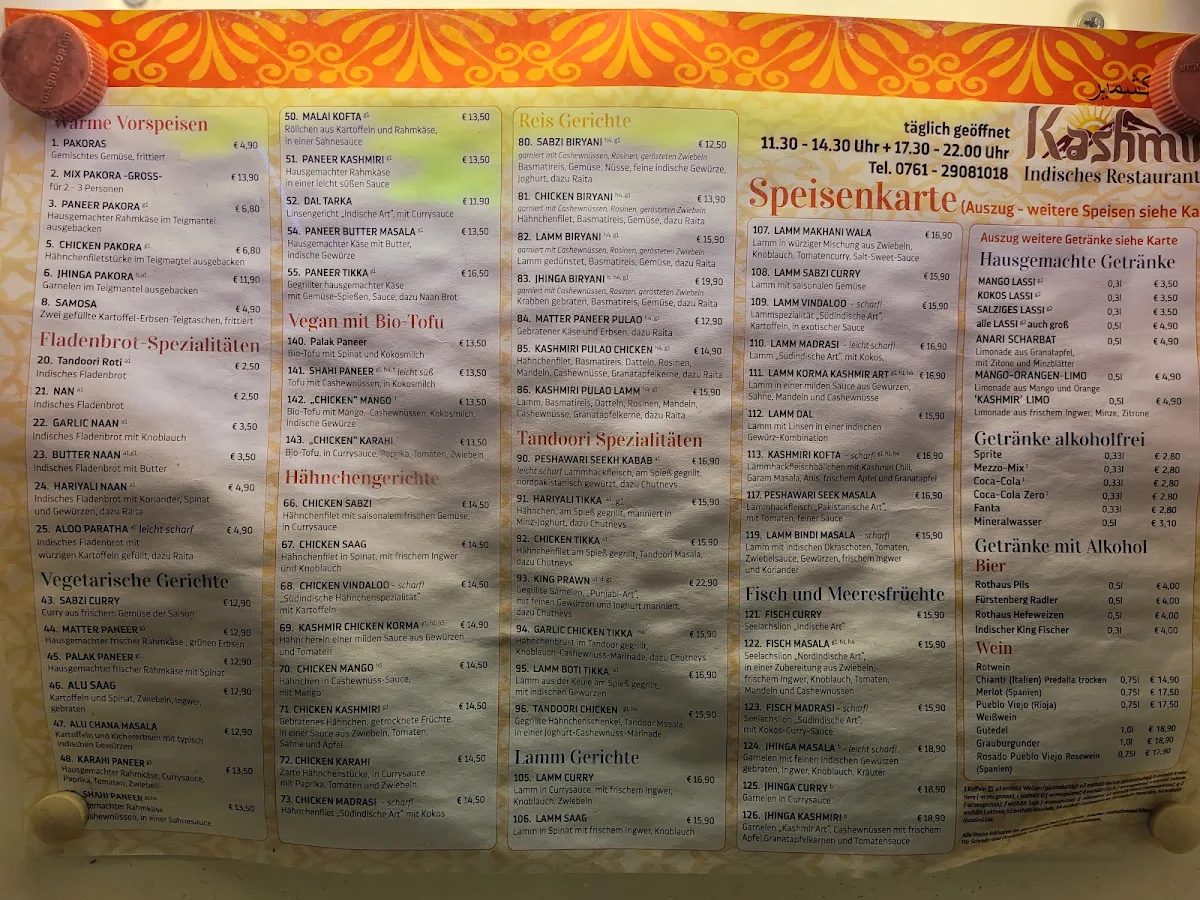 Warme Vorspeisen
1. PAKORAS € 4,90
Gemischtes Gemüse, frittiert
2. MIX PAKORA -GROSS- € 13,90
für 2 - 3 Personen
3. PANEER PAKORA g1 € 6,80
Hausgemachter Rahmkäse im Teigmantel
ausgebacken
5. CHICKEN PAKORA g1 € 6,80
Hähnchenfiletstücke im Teigmantel ausgebacken
6. JHINGA PAKORA € 11,90
Garnelen im Teigmantel ausgebacken
8. SAMOSA € 4,90
Zwei gefüllte Kartoffel-Erbsen-Teigtaschen, frittiert
Fladenbrot-Spezialitäten
20. Tandoori Roti a1 € 2,50
Indisches Fladenbrot
21. NAN a1 € 2,50
Indisches Fladenbrot
22. GARLIC NAAN a1 € 3,50
Indisches Fladenbrot mit Knoblauch
23. BUTTER NAAN a1,g1 € 3,50
Indisches Fladenbrot mit Butter
24. HARIYALI NAAN a1 € 4,90
Indisches Fladenbrot mit Koriander, Spinat
und Gewürzen, dazu Raita
25. ALOO PARATHA a1 leicht scharf € 4,90
Indisches Fladenbrot mit
würzigen Kartoffeln gefüllt, dazu Raita
Vegetarische Gerichte
43. SABZI CURRY € 12,90
Curry aus frischem Gemüse der Saison
44. MATTER PANEER g1 € 12,90
Hausgemachter frischer Rahmkäse, grünen Erbsen
45. PALAK PANEER g1 € 12,90
Hausgemachter frischer Rahmkäse mit Spinat
46. ALU SAAG € 12,90
Kartoffeln und Spinat, Zwiebeln, Ingwer,
gebraten
47. ALU CHANA MASALA € 12,90
Kartoffeln und Kichererbsen mit typisch
indischen Gewürzen
48. KARAHI PANEER g1 € 13,50
Hausgemachter Rahmkäse, Currysauce,
Paprika, Tomaten, Zwiebel
SHAHI PANEER € 13,50
gemachter Rahmkäse
Cashewnüssen, in einer Sahnesauce
50. MALAI KOFTA g1 € 13,50
Röllchen aus Kartoffeln und Rahmkäse,
in einer Sahnesauce
51. PANEER KASHMIRI g1 € 13,50
Hausgemachter Rahmkäse
in einer leicht süßen Sauce
52. DAL TARKA € 11,90
Linsengericht „Indische Art", mit Currysauce
54. PANEER BUTTER MASALA g1 € 13,50
Hausgemachter Käse mit Butter,
indische Gewürze
55. PANEER TIKKA g1 € 16,50
Gegrillter hausgemachter Käse
mit Gemüse-Spießen, Sauce, dazu Naan Brot
Vegan mit Bio-Tofu
140. Palak Paneer € 13,50
Bio-Tofu mit Spinat und Kokosmilch
141. SHAHI PANEER leicht süß € 13,50
Tofu mit Cashewnüssen, in Kokosmilch
142. „CHICKEN" MANGO f € 13,50
Bio-Tofu mit Mango, Cashewnüssen, Kokosmilch,
Indische Gewürze
143. „CHICKEN" KARAHI € 13,50
Bio-Tofu, in Currysauce, Paprika, Tomaten, Zwiebeln
Hähnchengerichte
66. CHICKEN SABZI € 14,50
Hähnchenfilet mit saisonalem frischen Gemüse,
in Currysauce
67. CHICKEN SAAG € 14,50
Hähnchenfilet in Spinat, mit frischem Ingwer
und Knoblauch
68. CHICKEN VINDALOO - scharf! € 14,50
„Südindische Hähnchenspezialität"
mit Kartoffeln
69. KASHMIR CHICKEN KORMA g1, h1, h5 € 14,90
Hähnchen in einer milden Sauce aus Gewürzen
und Tomaten
70. CHICKEN MANGO h5 € 14,50
Hähnchen in Cashewnuss-Sauce,
mit Mango
71. CHICKEN KASHMIRI g1 € 14,50
Gebratenes Hähnchen, getrocknete Früchte,
in einer Sauce aus Zwiebeln, Tomaten,
Sahne und Apfel
72. CHICKEN KARAHI € 14,50
Zarte Hähnchenstücke, in Currysauce
mit Paprika, Tomaten und Zwiebeln
73. CHICKEN MADRASI - scharf! € 14,50
Hähnchenfilet „Südindische Art" mit Kokos
Reis Gerichte
80. SABZI BIRYANI h4, g1 € 12,50
garniert mit Cashewnüssen, Rosinen, gerösteten Zwiebeln
Basmatireis, Gemüse, Nüsse, feine indische Gewürze,
Joghurt, dazu Raita
81. CHICKEN BIRYANI h4, g1 € 13,90
garniert mit Cashewnüssen, Rosinen, gerösteten Zwiebeln
Hähnchenfilet, Basmatireis, Gemüse, dazu Raita
82. LAMM BIRYANI h4, g1 € 15,90
garniert mit Cashewnüssen, Rosinen, gerösteten Zwiebeln
Lamm gedünstet, Basmatireis, Gemüse, dazu Raita
83. JHINGA BIRYANI b, h4, g1 € 19,90
garniert mit Cashewnüssen, Rosinen, gerösteten Zwiebeln
Krabben gebraten, Basmatireis, Gemüse, dazu Raita
84. MATTER PANEER PULAO h4, g1 € 12,90
Gebratener Käse und Erbsen, dazu Raita
85. KASHMIRI PULAO CHICKEN h4, g1 € 14,90
Hähnchenfilet, Basmatireis, Datteln, Rosinen,
Mandeln, Cashewnüsse, Granatapfelkerne, dazu Raita
86. KASHMIRI PULAO LAMM h4, g1 € 15,90
Lamm, Basmatireis, Datteln, Rosinen, Mandeln,
Cashewnüsse, Granatapfelkerne, dazu Raita
Tandoori Spezialitäten
90. PESHAWARI SEEKH KABAB g1 € 16,90
leicht scharf Lammhackfleisch, am Spieß gegrillt,
nordpakistanisch gewürzt, dazu Chutneys
91. HARIYALI TIKKA g1 € 15,90
Hähnchen, am Spieß gegrillt, mariniert in
Minz-Joghurt, dazu Chutneys
92. CHICKEN TIKKA € 15,90
Hähnchenfilet am Spieß gegrillt, Tandoori Masala,
dazu Chutneys
93. KING PRAWN € 22,90
Gegrillte Garnelen, „Punjabi-Art",
mit feinen Gewürzen und Joghurt mariniert,
dazu Chutneys
94. GARLIC CHICKEN TIKKA h4 € 15,90
Hähnchenbrust im Tandoor gegrillt,
Knoblauch-Cashewnuss-Marinade, dazu Chutneys
95. LAMM BOTI TIKKA g1 € 16,90
Lamm aus der Keule am Spieß gegrillt,
mit indischen Gewürzen
96. TANDOORI CHICKEN g1, h4 € 15,90
Gegrillte Hähnchenschenkel, Tandoor Masala,
in einer Joghurt-Cashewnuss-Marinade
Lamm Gerichte
105. LAMM CURRY € 16,90
Lamm in Currysauce, mit frischem Ingwer,
Knoblauch, Zwiebeln
106. LAMM SAAG € 15,90
Lamm in Spinat mit frischem Ingwer, Knoblauch
täglich geöffnet
11.30 - 14.30 Uhr + 17.30 - 22.00 Uhr
Tel. 0761 - 29081018
كشمير
Kashmir
Indisches Restaurant
Speisenkarte (Auszug - weitere Speisen siehe Ka
107. LAMM MAKHANI WALA € 16,90
Lamm in würziger Mischung aus Zwiebeln,
Knoblauch, Tomatencurry, Salt-Sweet-Sauce
108. LAMM SABZI CURRY € 15,90
Lamm mit saisonalen Gemüse
109. LAMM VINDALOO - scharf! € 15,90
Lammspezialität „Südindische Art",
Kartoffeln, in exotischer Sauce
110. LAMM MADRASI - leicht scharf € 16,90
Lamm „Südindische Art", mit Kokos,
111. LAMM KORMA KASHMIR ART g1, h1, h4 € 16,90
Lamm in einer milden Sauce aus Gewürzen,
Sahne, Mandeln und Cashewnüssen
112. LAMM DAL € 15,90
Lamm mit Linsen in einer indischen
Gewürz-Kombination
113. KASHMIRI KOFTA - scharf! g1, h1, h4 € 16,90
Lammhackfleischbällchen mit Kashmiri Chili,
Garam Masala, Anis, frischem Apfel und Granatapfel
117. PESHAWARI SEEK MASALA € 16,90
Lammhackfleisch „Pakistanische Art",
mit Tomaten, feiner Sauce
119. LAMM BINDI MASALA - scharf! € 15,90
Lamm mit indischen Okraschoten, Tomaten,
Zwiebelsauce, Gewürzen, frischem Ingwer
und Koriander
Fisch und Meeresfrüchte
121. FISCH CURRY € 15,90
Seelachsfilet „Indische Art"
122. FISCH MASALA g1, h1, h4 € 15,90
Seelachsfilet „Nordindische Art",
in einer Zubereitung aus Zwiebeln,
frischem Ingwer, Knoblauch, Tomaten,
Mandeln und Cashewnüssen
123. FISCH MADRASI - scharf! € 15,90
Seelachsfilet „Südindische Art",
mit Kokos-Curry-Sauce
124. JHINGA MASALA b - leicht scharf! € 18,90
Garnelen mit feinen Indischen Gewürzen
gebraten, Ingwer, Knoblauch, Kräuter
125. JHINGA CURRY b € 18,90
Garnelen in Currysauce
126. JHINGA KASHMIRI b € 18,90
Garnelen „Kashmir Art", Cashewnüssen mit frischem
Apfel,Granatapfelkernen und Tomatensauce
Auszug weitere Getränke siehe Karte
Hausgemachte Getränke
MANGO LASSI g2 0,3l € 3,50
KOKOS LASSI g2 0,3l € 3,50
SALZIGES LASSI g2 0,3l € 3,50
alle LASSI g2 auch groß 0,5l € 4,90
ANARI SCHARBAT 0,5l € 4,90
Limonade aus Granatapfel,
mit Zitrone und Minzblätter
MANGO-ORANGEN-LIMO 0,5l € 4,90
Limonade aus Mango und Orange
'KASHMIR' LIMO 0,5l € 4,90
Limonade aus frischem Ingwer, Minze, Zitrone
Getränke alkoholfrei
Sprite 0,33l € 2,80
Mezzo-Mix 1 0,33l € 2,80
Coca-Cola 1 0,33l € 2,80
Coca-Cola Zero 1 0,33l € 2,80
Fanta 0,33l € 2,80
Mineralwasser 0,5l € 3,10
Getränke mit Alkohol
Bier
Rothaus Pils 0,5l € 4,00
Fürstenberg Radler 0,5l € 4,00
Rothaus Hefeweizen 0,5l € 4,00
Indischer King Fischer 0,3l € 4,00
Wein
Rotwein
Chianti (Italien) Predalla trocken 0,75l € 14,90
Merlot (Spanien) 0,75l € 17,50
Pueblo Viejo (Rioja) 0,75l € 17,50
Weißwein
Gutedel 1,0l € 18,90
Grauburgunder 1,0l € 18,90
Rosado Pueblo Viejo Rosewein 0,75l € 17,90
(Spanien)